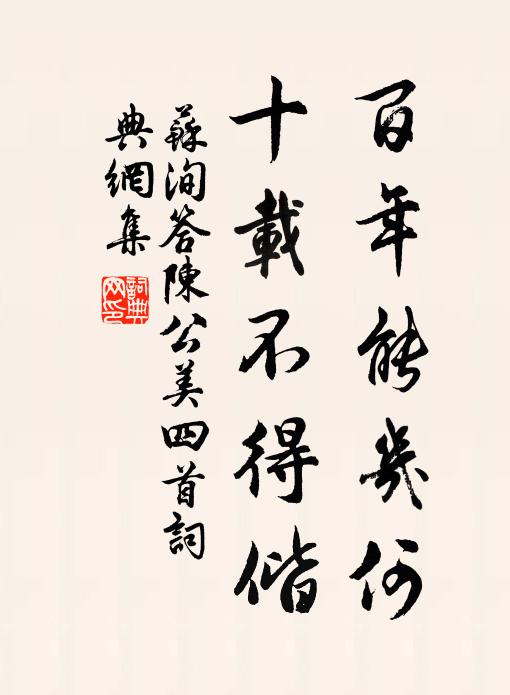 百年能幾何
十載不得偕
蘇洵答陳公美四首詞
典網集
詞典
网印